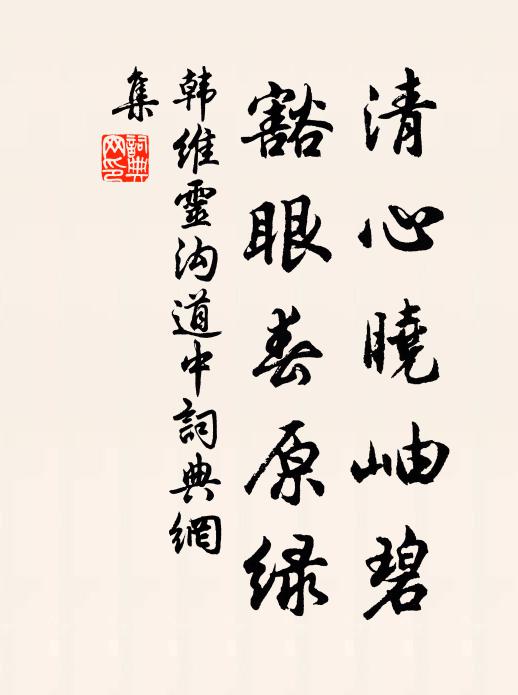 清心曉岫碧
豁眼春原绿
韩維靈沟道中詞典網
集
詞典网印